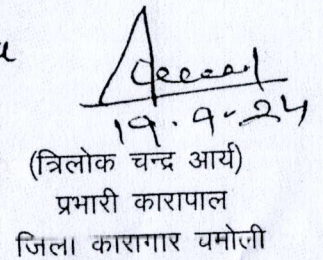 19.9.24
(त्रिलोक चन्द्र आर्य)
प्रभारी कारापाल
जिला कारागार चमोली